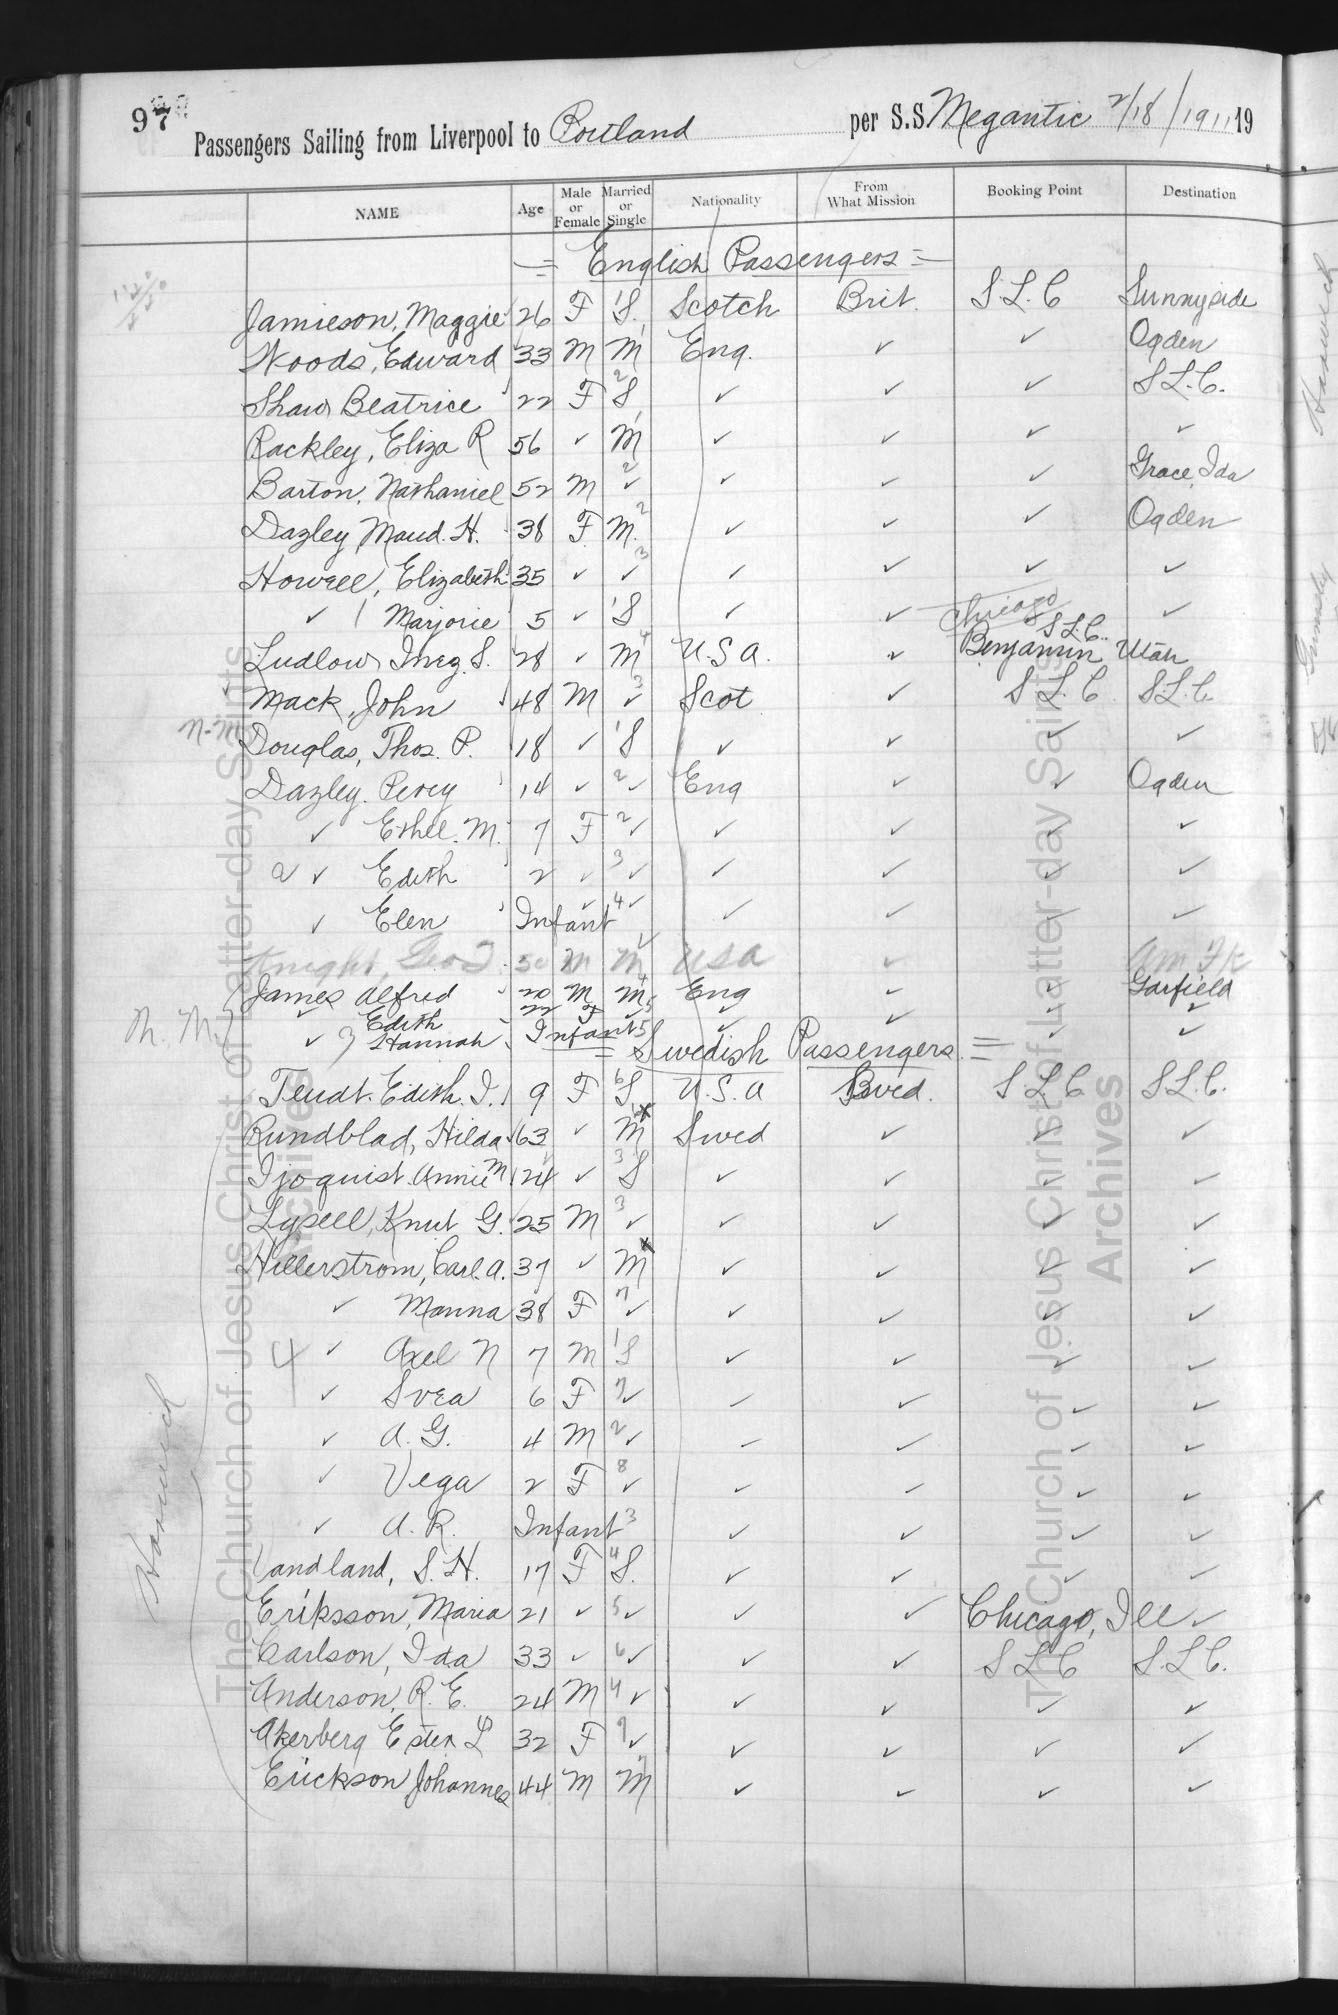 97
Passengers Sailing from Liverpool to Portland per S.S. Megantic 2/18/1911 19
NAME Age Male or Female Married or Single Nationality From What Mission Booking Point Destination
= English Passengers =
Jamieson, Maggie 26 F 1 S. Scotch Brit. S.L.C Sunnyside
Woods, Edward 33 M M 1 Eng. ✓ ✓ Ogden
Shaw Beatrice 22 F 2 S ✓ ✓ ✓ S.L.C.
Rackley, Eliza R 56 ✓ M 1 ✓ ✓ ✓ ✓
Barton, Nathaniel 52 M 2 ✓ ✓ ✓ ✓ Grace, Ida
Dazley Maud. H. 38 F. M. 2 ✓ ✓ ✓ Ogden
Howell, Elizabeth 35 ✓ ✓ 3 ✓ ✓ ✓ ✓
✓ 1 Marjorie 5 ✓ 1 S ✓ ✓ Chicago ✓
S.L.C.
Ludlow, Inez. S. 28 ✓ M 4 U.S.A. ✓ Benjamin Utah
Mack, John 48 M ✓ 3 Scot ✓ S.L.C. S.L.C.
N-M Douglas, Thos. P. 18 ✓ 1 S ✓ ✓ ✓ ✓
Dazley. Percy 14 ✓ 2 ✓ Eng ✓ ✓ Ogden
✓ Ethel. M. 7 F 2 ✓ ✓ ✓ ✓ ✓
2 ✓ Edith 2 ✓ 3 ✓ ✓ ✓ ✓ ✓
✓ Elen Infant ✓ 4 ✓ ✓ ✓ ✓ ✓
Knight, Geo 50 M M USA ✓ Am Fk
James Alfred 20 M M Eng ✓ ✓ Garfield
✓ Edith 22 F ✓ ✓ ✓ ✓
N. M. ✓ 3 Hannah Infant 5 ✓
= Swedish Passengers =
Teudt. Edith. I. 9 F 6 S U.S.A Swed. S.L.C S.L.C.
Rundblad, Hilda 63 ✓ M x Swed ✓ ✓ ✓
Sjoquist. Annie M 24 ✓ 3 S ✓ ✓ ✓ ✓
Lysell, Knut G. 25 M 3 ✓ ✓ ✓ ✓ ✓
Hillerstrom, Carl. A. 37 ✓ M x ✓ ✓ ✓ ✓
✓ Manna 38 F 7 ✓ ✓ ✓ ✓ ✓
4 ✓ Axel N 7 M 1 S ✓ ✓ ✓ ✓
✓ Svea 6 F 7 ✓ ✓ ✓ ✓ ✓
✓ A. G. 4 M 2 ✓ ✓ ✓ ✓ ✓
✓ Vega 2 F 8 ✓ ✓ ✓ ✓ ✓
✓ A. R. Infant 3 ✓ ✓ ✓ ✓
Vandland, S. H. 17 F 4 S. ✓ ✓ ✓ ✓
Eriksson, Maria 21 ✓ 5 ✓ ✓ ✓ Chicago, Ill ✓
Carlson, Ida 33 ✓ 6 ✓ ✓ ✓ S L C S.L.C.
Anderson, R. E. 24 M 4 ✓ ✓ ✓ ✓ ✓
Akerberg Ester L 32 F 7 ✓ ✓ ✓ ✓ ✓
Erickson Johannes 44 M M ✓ ✓ ✓ ✓
Harwich
Harwich
Grimsby
The Church of Jesus Christ of Latter-day Saints
Archives
The Church of Jesus Christ of Latter-day Saints
Archives